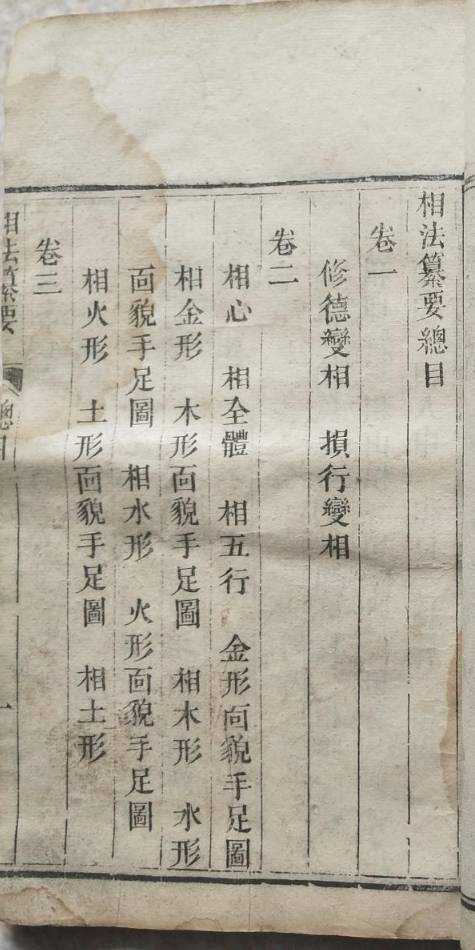 相法纂要總目
卷一
修德變相　損行變相
卷二
相心　相全體　相五行　金形面貌手足圖
相金形　木形面貌手足圖　相木形　水形
面貌手足圖　相水形　火形面貌手足圖
相火形　土形面貌手足圖　相土形
卷三
相法纂要　總目　一